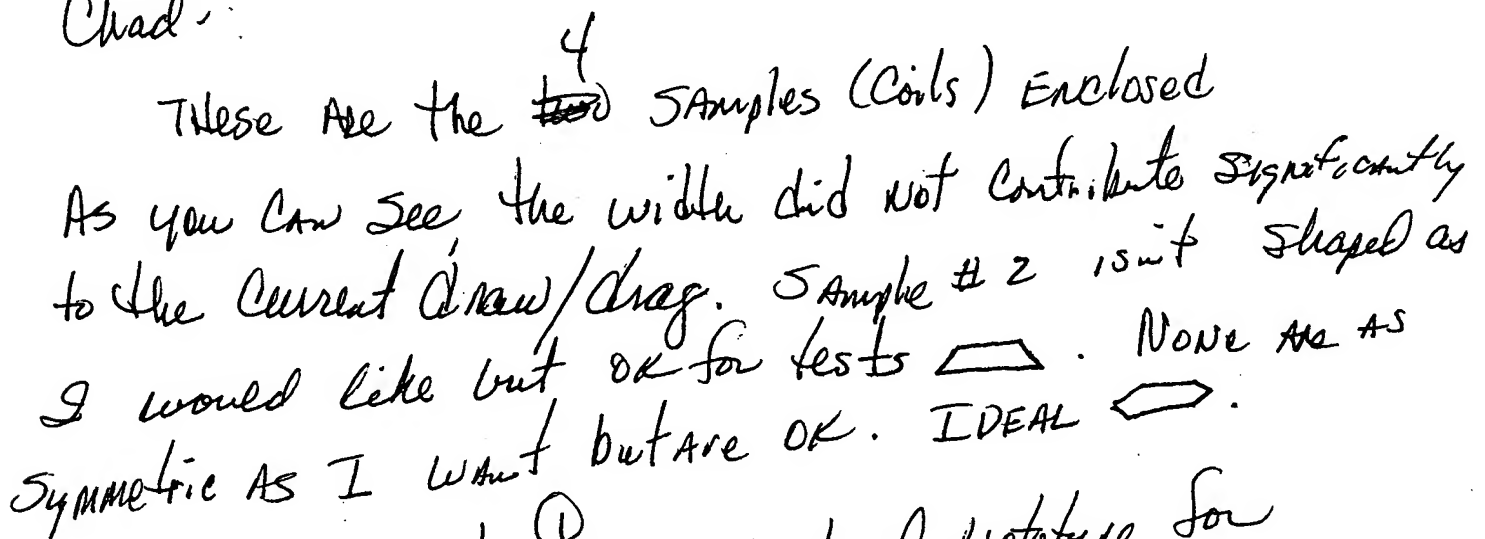 Chad -
4
These Are the two Samples (Coils) Enclosed
As you Can See, the width did not Contribute Significantly
to the Current draw/drag. Sample # 2 isn't Shaped as
I would like but OK for tests. None Are AS
Symmetric As I want but Are OK. IDEAL.
① for